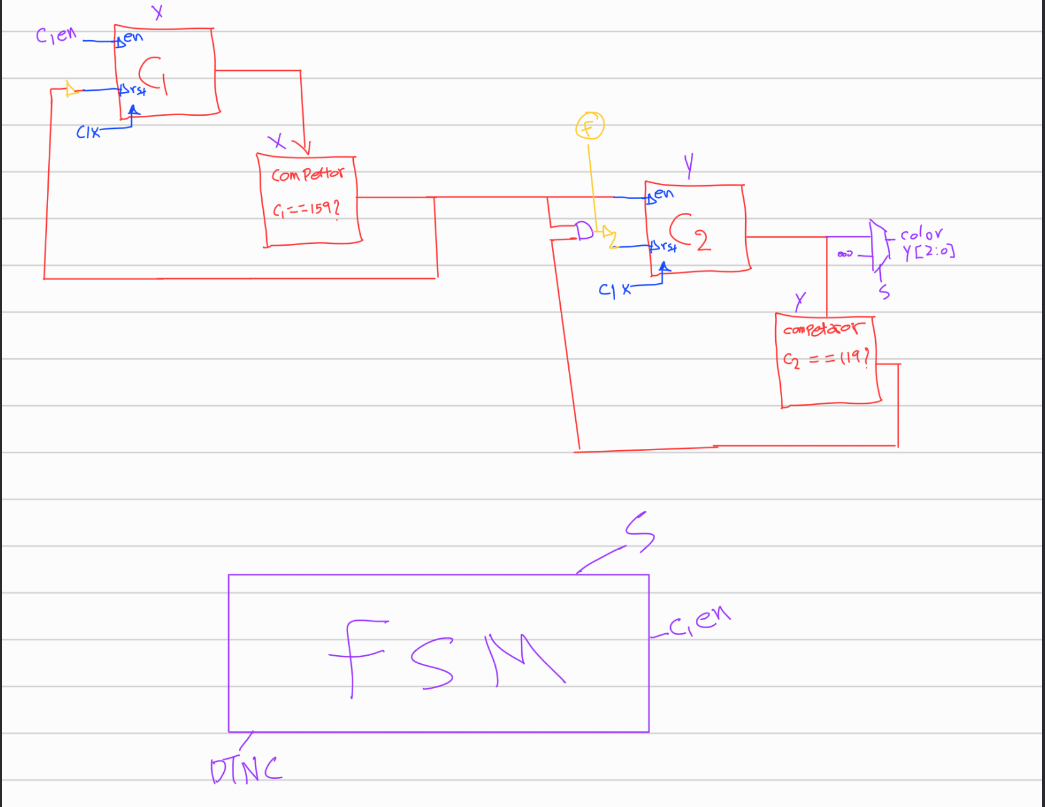 X
C1en
en
C1
rst
Clx
X
Compettor
C1==159?
F
Y
en
C2
rst
Clx
color
Y[2:0]
S
Y
competator
C2 == 119?
S
FSM
C1en